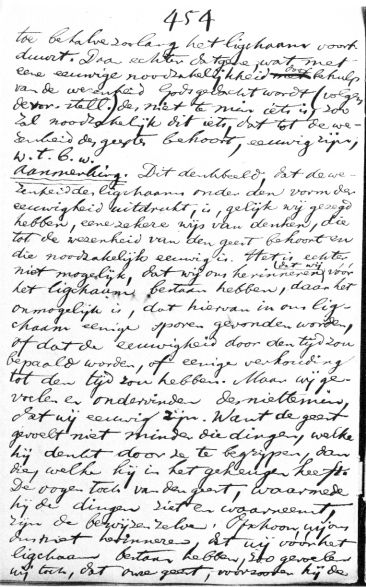 454
toe behalve zoolang het ligchaam voort
duurt. Daar echter datgene, wat met
eene eeuwige noodzakelijkheid door behulp
van de wezenheid Gods gedacht wordt (volgens
de vor. stell.) des niet te min iets is, zoo
zal noodzakelijk dit iets, dat tot de we-
zenheid des geestes behoort, eeuwig zijn,
w. t. b. w.
Aanmerking. Dit denkbeeld, dat de we-
zenheid des ligchaams onder den vorm der
eeuwigheid uitdrukt, is, gelijk wij gezegd
hebben, eene zekere wijs van denken, die
tot de wezenheid van den geest behoort en
die noodzakelijk eeuwig is. Het is echter
niet mogelijk, dat wij ons herinneren, dat wij vóór
het ligchaam bestaan hebben, daar het
onmogelijk is, dat hiervan in ons lig-
chaam eenige sporen gevonden worden,
of dat de eeuwigheid door den tijd zou
bepaald worden, of eenige verhouding
tot den tijd zou hebben. Maar wij ge-
voelen en ondervinden desniettemin,
dat wij eeuwig zijn. Want de geest
gevoelt niet minder die dingen, welke
hij denkt door ze te begrijpen, dan
die, welke hij in het geheugen heeft.
De oogen toch van den geest, waarmede
hij de dingen ziet en waarneemt,
zijn de bewijzen zelve. Ofschoon wij ons
dus niet herinneren, dat wij voor het
ligchaam bestaan hebben, zoo gevoelen
wij toch, dat onze geest, voorzoover hij de